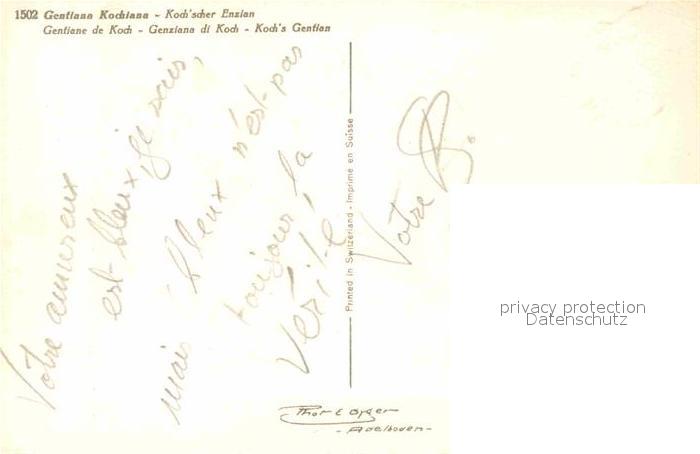 1502 Gentiana Kochiana - Koch'scher Enzian
Gentiane de Koch - Genziana di Koch - Koch's Gentian
Votre amureux
est bleux, je sais,
mais bleux n'est-pas
toujour la
Verité!
Votre B.
Printed in Switzerland - Imprimé en Suisse
privacy protection
Datenschutz
- Adelboden -